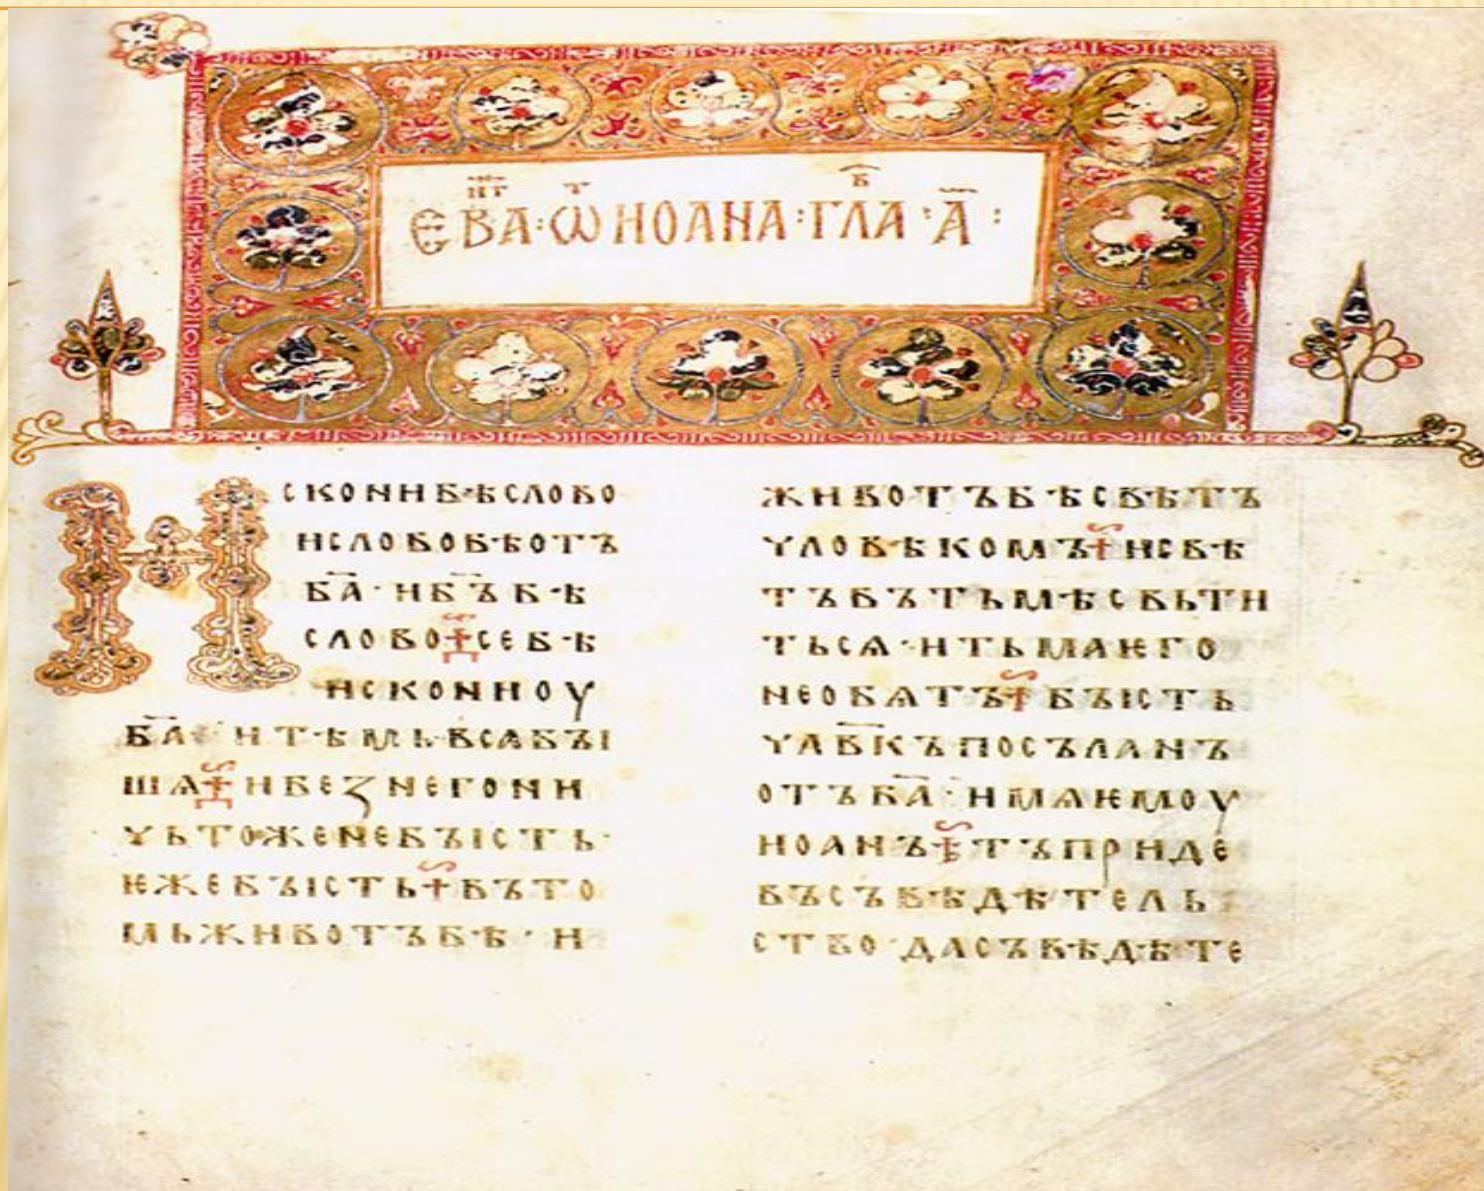 ЕВА҃НГ : Ѡ Т ИОАНА : ГЛАВ : А҃ :
ИСКОНИ БѢ СЛОВО
И СЛОВО БѢ ОТЪ
БА҃ · И БЪ҃ БѢ
СЛОВО ⁘ СЕ БѢ
ИСКОНИ ОУ
БА҃ · И ТѢМЬ ВСѦ БЪІ
ШѦ ⁘ И БЕЗ НЕГО НИ
ЧЬТОЖЕ НЕ БЪІСТЬ ·
ѤЖЕ БЪІСТЬ ⁘ ВЪ ТО
МЬ ЖИВОТЪ БѢ · И
ЖИВОТЪ БѢ СВѢТЪ
ЧЛОВѢКОМЪ ⁘ И СВѢ
ТЪ ВЪ ТЬМѢ СВЬТИ
ТЬСѦ · И ТЬМА ѤГО
НЕ ОБѦТЪ ⁘ БЪІСТЬ
ЧЛВ҃КЪ ПОСЪЛАНЪ
ОТЪ БА҃ · ИМѦ ѤМОУ
ИОАНЪ ⁘ ТЪ ПРИДЕ
ВЪ СЪВѢДѢТЕЛЬ
СТВО · ДА СЪВѢДѢТЕ